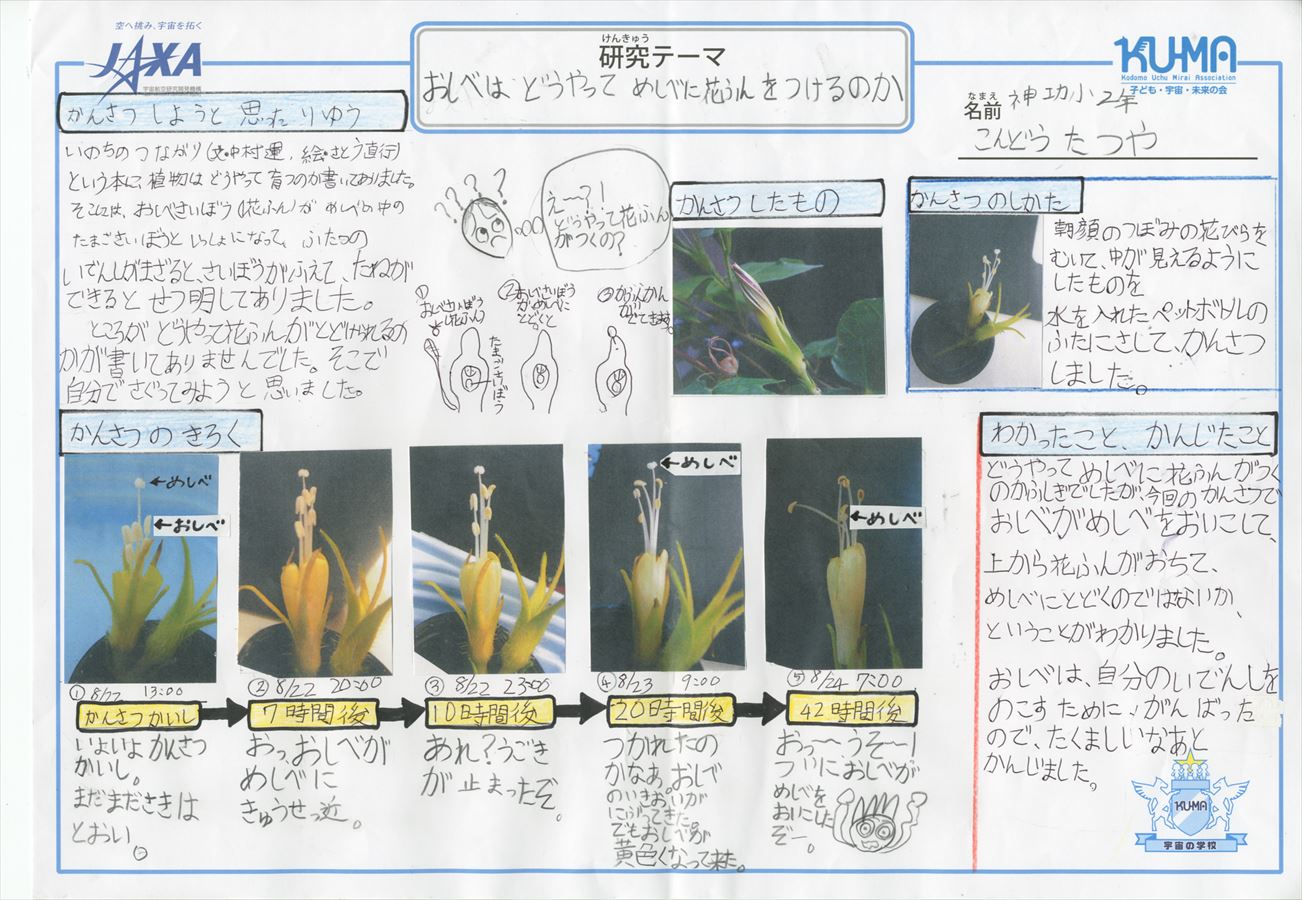 空へ挑み、宇宙を拓く
JAXA
宇宙航空研究開発機構
けんきゅう
研究テーマ
おしべは どうやって めしべに花ふんをつけるのか
KU-MA
Kodomo Uchu Mirai Association
子ども・宇宙・未来の会
なまえ
名前 神功小2年
こんどう たつや
かんさつ しようと 思った りゆう
いのちのつながり(文・中村運、絵・さとう直行)
という本に、植物は どうやって 育つのか書いてありました。
そこには、おしべさいぼう(花ふん)が めしべの中の
たまごさいぼうと いっしょになって、ふたつの
いでんしがまざると、さいぼうがふえて、たねが
できると せつ明してありました。
ところが どうやって花ふんがとどけられるの
かが書いてありませんでした。そこで
自分でさぐってみようと思いました。
????
え〜?!
どうやって花ふん
がつくの?
①
おしべさいぼう
(花ふん)
たまごさいぼう
②おしべさいぼう
がめしべに
とどくと
③かふんかん
が
でてきます。
かんさつしたもの
かんさつのしかた
朝顔のつぼみの花びらを
むいて、中が見えるように
したものを
水を入れたペットボトルの
ふたにさして、かんさつ
しました。
かんさつの きろく
←めしべ
←おしべ
←めしべ
←めしべ
① 8/22 13:00
かんさつかいし
いよいよ かんさつ
かいし。
まだまださきは
とおい。
② 8/22 20:00
7時間後
おっ、おしべが
めしべに
きゅうせっ近。
③ 8/22 23:00
10時間後
あれ?うごき
が止まったぞ。
④ 8/23 9:00
20時間後
つかれたの
かなぁ。おしべ
のいきおいが
にぶってきた。
でもおしべが
黄色くなって来た。
⑤ 8/24 7:00
42時間後
おっ〜うそ〜!
ついにおしべが
めしべを
おいこした
ぞー。
わかったこと、かんじたこと
どうやって めしべに 花ふんがつく
のかふしぎでしたが、今回の かんさつで
おしべがめしべをおいこして、
上から花ふんがおちて、
めしべにとどくのではないか、
ということがわかりました。
おしべは、自分のいでんしを
のこすために、がんばった
ので、たくましいなあと
かんじました。
KU-MA
宇宙の学校